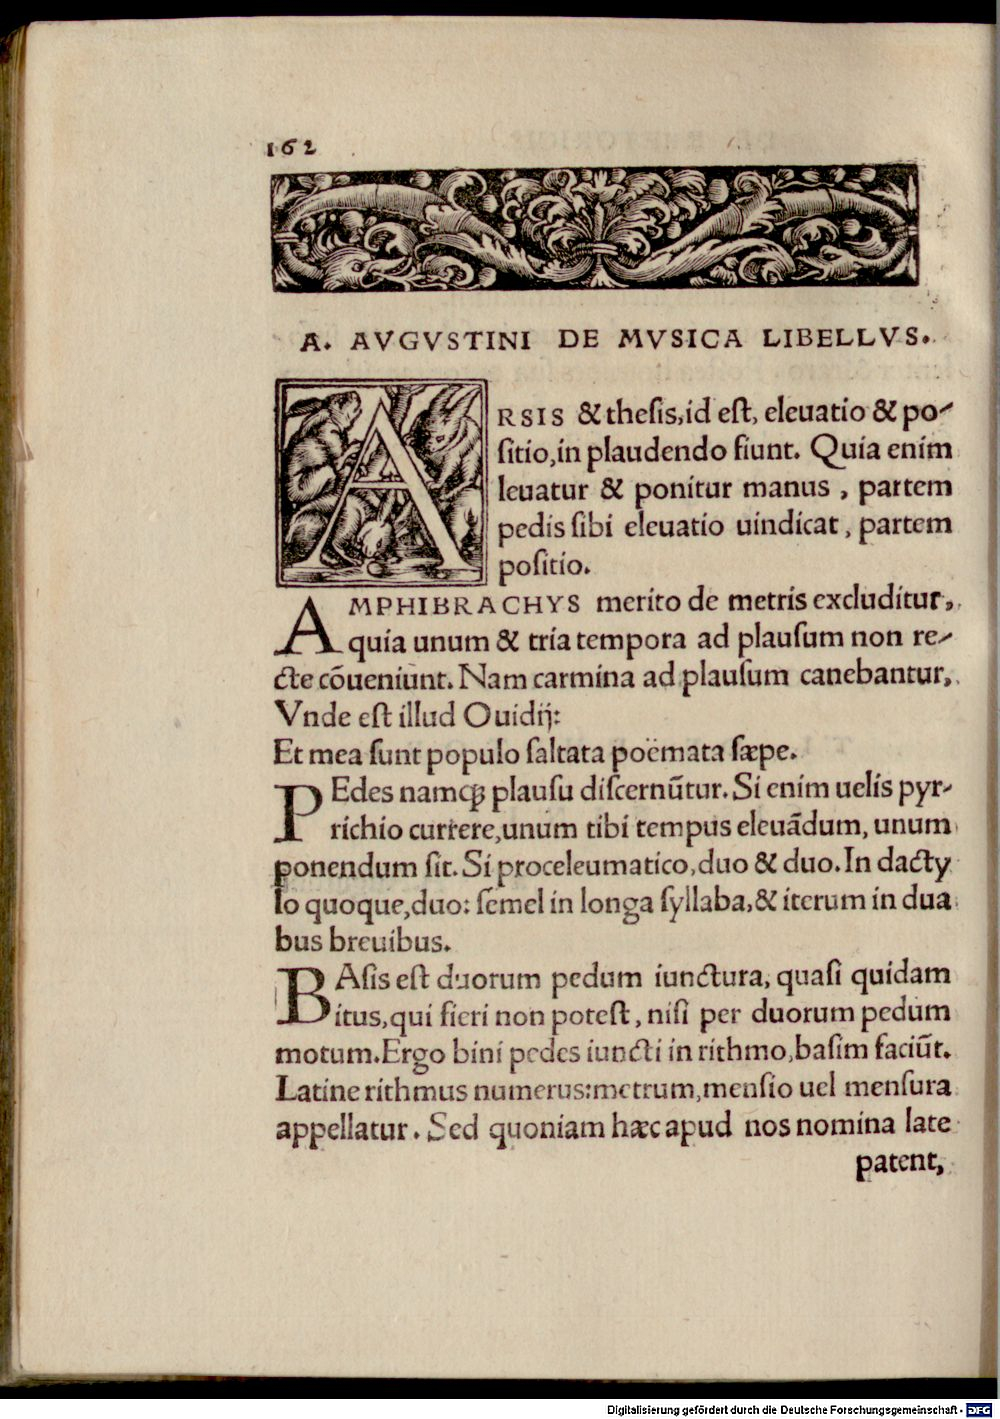 162
A. AVGVSTINI DE MVSICA LIBELLVS.
ARSIS & thesis, id est, eleuatio & po-
sitio, in plaudendo fiunt. Quia enim
leuatur & ponitur manus, partem
pedis sibi eleuatio uindicat, partem
positio.
AMPHIBRACHYS merito de metris excluditur,
quia unum & tria tempora ad plausum non re-
cte cōueniunt. Nam carmina ad plausum canebantur,
Vnde est illud Ouidij:
Et mea sunt populo saltata poëmata sæpe.
PEdes namq́ꝫ plausu discernūtur. Si enim uelis pyr-
richio currere, unum tibi tempus eleuādum, unum
ponendum sit. Si proceleumatico, duo & duo. In dacty
lo quoque, duo: semel in longa syllaba, & iterum in dua
bus breuibus.
BAsis est duorum pedum iunctura, quasi quidam
itus, qui fieri non potest, nisi per duorum pedum
motum. Ergo bini pedes iuncti in rithmo, basim faciūt.
Latine rithmus numerus: metrum, mensio uel mensura
appellatur. Sed quoniam hæc apud nos nomina late
patent,
Digitalisierung gefördert durch die Deutsche Forschungsgemeinschaft - DFG